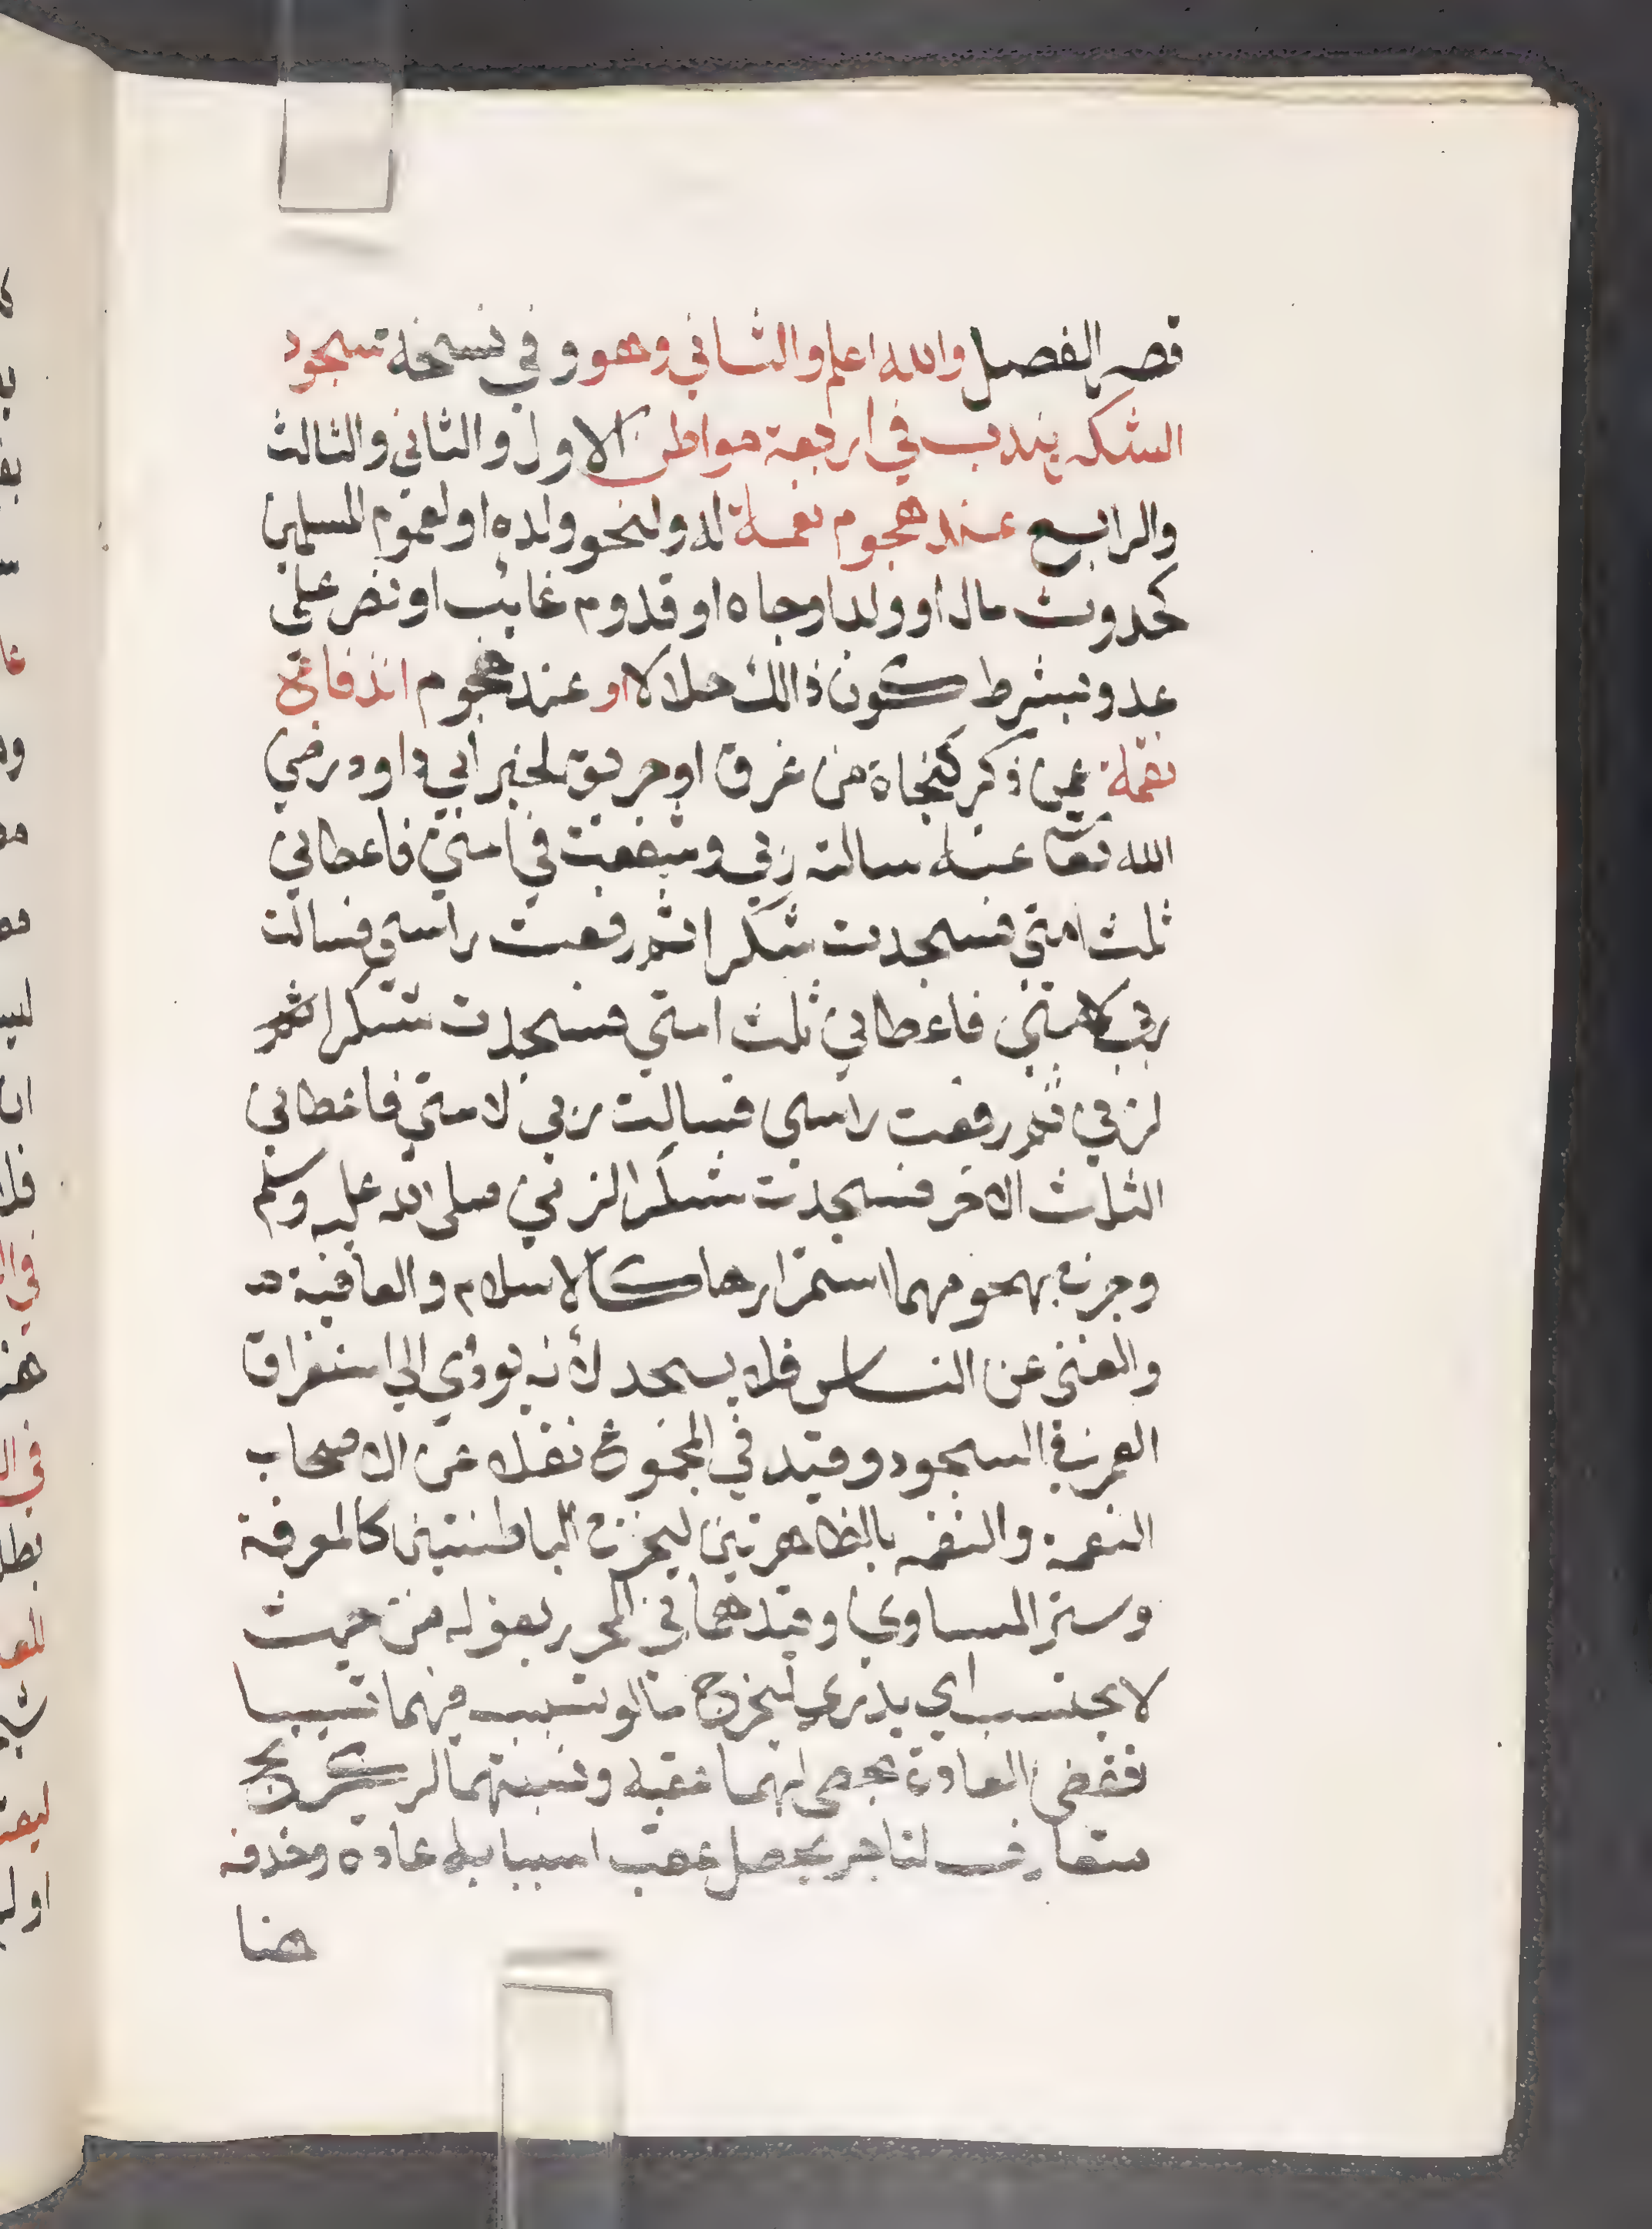 قصر الفصل والله اعلم والثاني وهو وفي نسخة سجود
الشكر يندب في اربعة مواطن الاول والثاني والثالث
والرابع عند هجوم نعمة له ولنحو ولده او لعموم المسلمين
كحدوث مال او ولد اوجاه او قدوم غائب او نصر على
عدو بشرط كون ذالك حلالا او عند هجوم اندفاع
نقمة عمن ذكر كنجاة من غرق او حريق لخبر ابي داود رضي
الله تعا عنه سالت ربي وشفعت في امتي فاعطاني
ثلث امتي فسجدت شكرا ثم رفعت راسي فسالت
ربي لامتي فاعطاني ثلث امتي فسجدت شكرا
لربي ثم رفعت راسي فسالت ربي لامتي فاعطاني
الثلث الاخر فسجدت شكرا لربي صلى الله عليه وسلم
وخرج بهجومهما استمرارها كالاسلام والعافية
والغنى عن الناس فلا يسجد لأنه يودي الى استغراق
العمر في السجود وقيد في المجموع نقله عن الاصحاب
النعمة والنقمه بالظاهرتين ليخرج الباطنتين كالمعرفة
وستر المساوي وقيدهما في المحرر بقوله من حيث
لا يحتسب اي يدري ليخرج مالو تسبب فيهما تسببا
تقضي العادة بحصولهما عقبه ونسبتهما له كربح
متعارف لتاجر يحصل عقب اسبابه عادة وحذفه
هنا